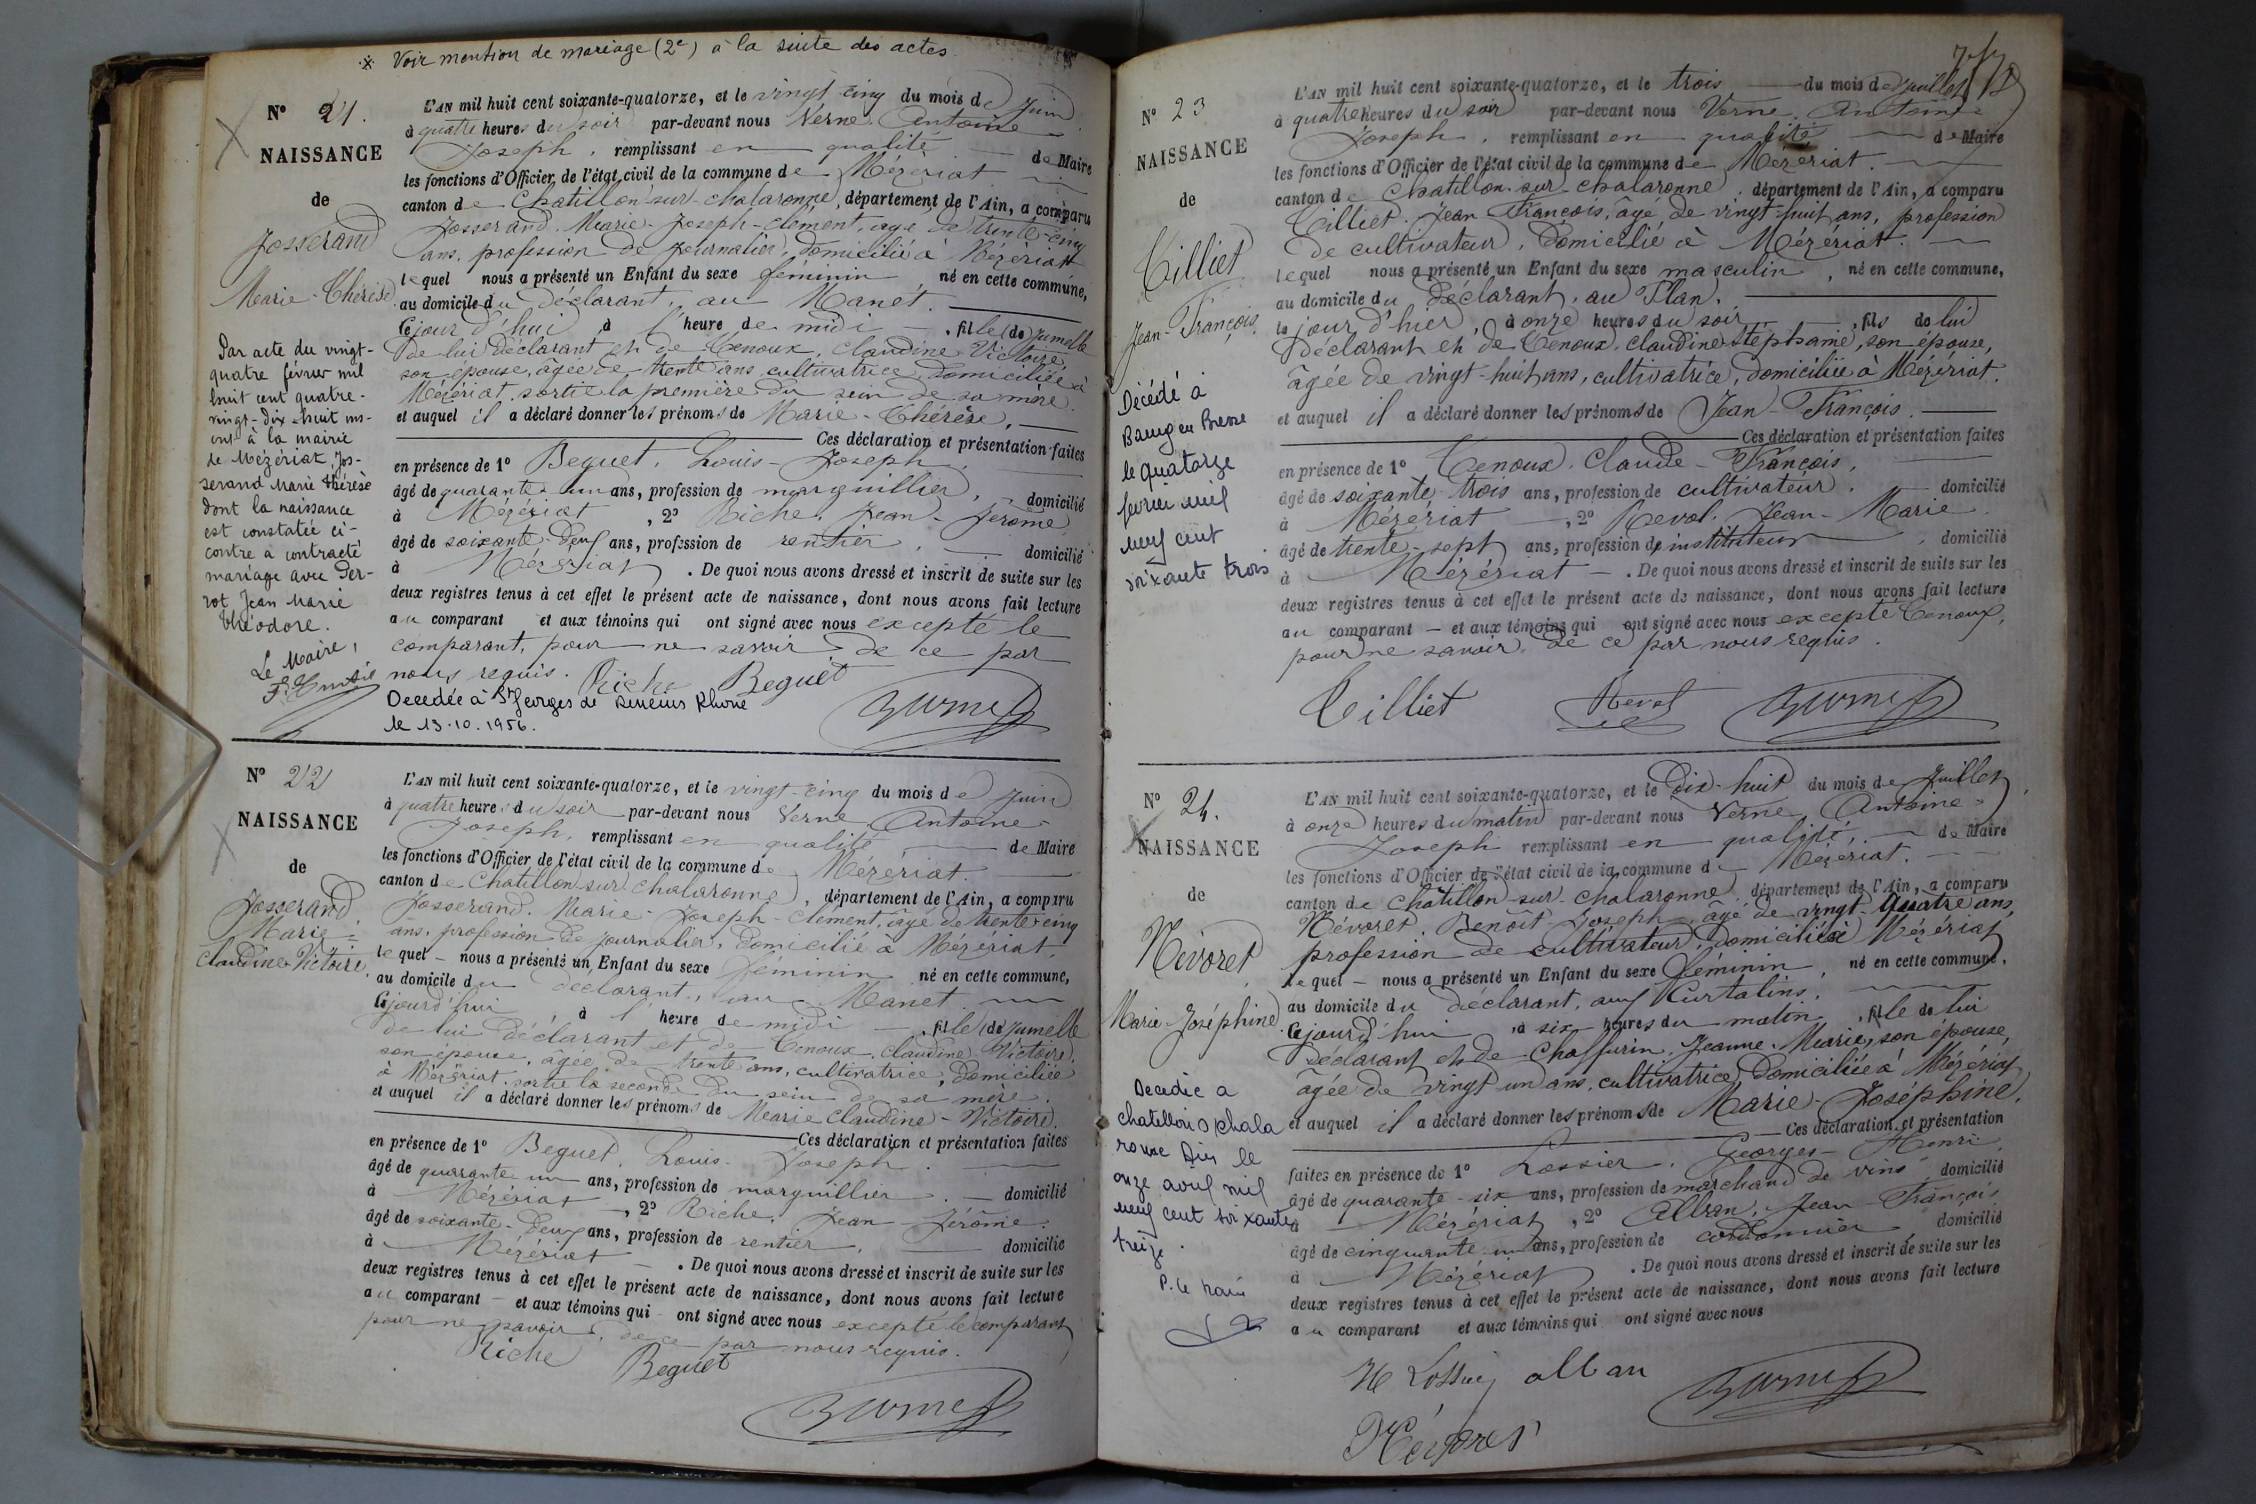 ※ Voir mention de mariage (2e) à la suite des actes
N° 21.
NAISSANCE
de
Josserand
Marie-Thérèse
Par acte du vingt-
quatre février mil
huit cent quatre-
vingt-dix-huit ins-
crit à la mairie
de Mézériat, Jos-
serand Marie Thérèse
dont la naissance
est constatée ci-
contre a contracté
mariage avec Per-
rot Jean Marie
Théodore.
Le Maire,
L'AN mil huit cent soixante-quatorze, et le vingt-cinq du mois de Juin
à quatre heures du soir par-devant nous Verne Antoine
Joseph, remplissant en qualité de Maire
les fonctions d'Officier de l'état civil de la commune de Mézériat
canton de Chatillon-sur-Chalaronne, département de l'Ain, a comparu
Josserand Marie-Joseph-Clément, âgé de trente-cinq
ans, profession de journalier, domicilié à Mézériat
lequel nous a présenté un Enfant du sexe féminin né en cette commune,
au domicile du déclarant, au Manet.
Cejourd'hui à l'heure de midi, fille (de) jumelle
de lui déclarant et de Tenoux, Claudine Victoire,
son épouse, âgée de trente ans, cultivatrice, domiciliée à
Mézériat, sortie la première du sein de sa mère.
et auquel il a déclaré donner les prénoms de Marie-Thérèse,
Ces déclaration et présentation faites
en présence de 1° Beguet, Louis-Joseph,
âgé de quarante-un ans, profession de marguillier, domicilié
à Mézériat, 2° Riche, Jean-Jérôme
âgé de soixante-deux ans, profession de rentier, domicilié
à Mézériat. De quoi nous avons dressé et inscrit de suite sur les
deux registres tenus à cet effet le présent acte de naissance, dont nous avons fait lecture
au comparant et aux témoins qui ont signé avec nous excepté le
comparant, pour ne savoir de ce par
nous requis. Riche Beguet
Decedée à St Georges de Reneins Rhone
le 13.10.1956.
N° 22
NAISSANCE
de
Josserand
Marie-
Claudine-Victoire
L'AN mil huit cent soixante-quatorze, et le vingt-cinq du mois de Juin
à quatre heures du soir par-devant nous Verne Antoine-
Joseph, remplissant en qualité de Maire
les fonctions d'Officier de l'état civil de la commune de Mézériat.
canton de Chatillon-sur-Chalaronne, département de l'Ain, a comparu
Josserand, Marie-Joseph-Clément, âgé de trente-cinq
ans, profession de journalier, domicilié à Mézériat,
lequel – nous a présenté un Enfant du sexe féminin né en cette commune,
au domicile du déclarant, au Manet
Cejourd'hui à l'heure de midi, fille (de) jumelle
de lui déclarant et de Tenoux, Claudine Victoire,
son épouse, âgée de trente ans, cultivatrice, domiciliée
à Mézériat, sortie la seconde du sein de sa mère.
et auquel il a déclaré donner les prénoms de Marie Claudine-Victoire.
Ces déclaration et présentation faites
en présence de 1° Beguet, Louis-Joseph.
âgé de quarante un ans, profession de marguillier. domicilié
à Mézériat, 2° Riche, Jean Jérôme.
âgé de soixante-deux ans, profession de rentier, domicilié
à Mézériat. De quoi nous avons dressé et inscrit de suite sur les
deux registres tenus à cet effet le présent acte de naissance, dont nous avons fait lecture
au comparant – et aux témoins qui ont signé avec nous excepté le comparant
pour ne savoir, de ce par nous requis.
Riche Beguet
N° 23
NAISSANCE
de
Tilliet
Jean-François
Décédé à
Bourg en Bresse
le quatorze
fevrier mil
neuf cent
soixante trois
L'AN mil huit cent soixante-quatorze, et le trois du mois de Juillet
à quatre heures du soir par-devant nous Verne, Antoine
Joseph, remplissant en qualité de Maire
les fonctions d'Officier de l'état civil de la commune de Mézériat.
canton de Chatillon-sur-Chalaronne, département de l'Ain, a comparu
Tilliet, Jean François, âgé de vingt-huit ans, profession
de cultivateur, domicilié à Mézériat.
lequel nous a présenté un Enfant du sexe masculin, né en cette commune,
au domicile du déclarant, au Plan,
le jour d'hier, à onze heures du soir, fils de lui
déclarant et de Tenoux, Claudine Stéphanie, son épouse,
âgée de vingt-huit ans, cultivatrice, domiciliée à Mézériat.
et auquel il a déclaré donner les prénoms de Jean-François.
Ces déclaration et présentation faites
en présence de 1° Tenoux, Claude-François,
âgé de soixante-trois ans, profession de cultivateur, domicilié
à Mézériat, 2° Reval, Jean-Marie
âgé de trente-sept ans, profession de instituteur, domicilié
à Mézériat. De quoi nous avons dressé et inscrit de suite sur les
deux registres tenus à cet effet le présent acte de naissance, dont nous avons fait lecture
au comparant – et aux témoins qui ont signé avec nous excepté Tenoux,
pour ne savoir, de ce par nous requis.
Tilliet Reval
N° 24.
NAISSANCE
de
Névoret
Marie-Joséphine
Decedée a
Chatillon s Chala
ronne Ain le
onze avril mil
neuf cent soixante
treize.
P. le maire
L'AN mil huit cent soixante-quatorze, et le dix-huit du mois de Juillet
à onze heures du matin par-devant nous Verne Antoine-
Joseph remplissant en qualité, de Maire
les fonctions d'Officier de l'état civil de la commune de Mézériat.
canton de Chatillon-sur-Chalaronne, département de l'Ain, a comparu
Névoret, Benoît Joseph, âgé de vingt-quatre ans,
profession de cultivateur, domicilié à Mézériat
lequel – nous a présenté un Enfant du sexe féminin, né en cette commune,
au domicile du déclarant, aux Curtalins,
Cejourd'hui, à six heures du matin, fille de lui
déclarant et de Chaffurin, Jeanne-Marie, son épouse,
âgée de vingt un ans, cultivatrice, domiciliée à Mézériat
et auquel il a déclaré donner les prénoms de Marie-Joséphine.
Ces déclaration et présentation
faites en présence de 1° Lossier, Georges-Henri
âgé de quarante-six ans, profession de marchand de vins domicilié
à Mézériat, 2° Alban, Jean-François
âgé de cinquante-un ans, profession de cordonnier domicilié
à Mézériat. De quoi nous avons dressé et inscrit de suite sur les
deux registres tenus à cet effet le présent acte de naissance, dont nous avons fait lecture
au comparant et aux témoins qui ont signé avec nous
alban
Névoret